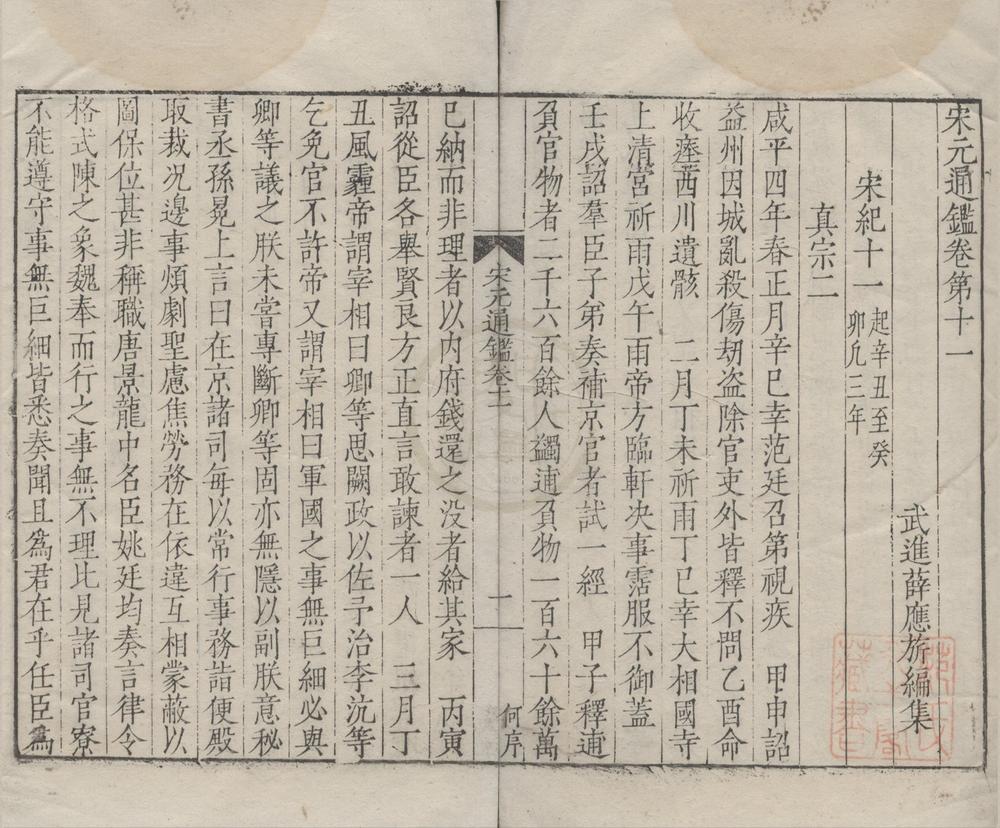 宋元通鑑卷第十一
武進薛應旂編集
宋紀十一 起辛丑至癸
卯凢三年
真宗二
咸平四年春正月辛巳幸范廷召第視疾 甲申詔
益州因城亂殺傷刼盗除官吏外皆釋不問乙酉命
收瘞西川遺骸 二月丁未祈雨丁巳幸大相國寺
上清宮祈雨戊午雨帝方臨軒决事霑服不御蓋
壬戌詔羣臣子弟奏補京官者試一經 甲子釋逋
負官物者二千六百餘人蠲逋負物一百六十餘萬
宋元通鑑卷十一
一
何序
已納而非理者以内府錢還之没者給其家 丙寅
詔從臣各舉賢良方正直言敢諫者一人 三月丁
丑風霾帝謂宰相曰卿等思闕政以佐予治李沆等
乞免官不許帝又謂宰相曰軍國之事無巨細必與
卿等議之朕未嘗專斷卿等固亦無隱以副朕意秘
書丞孫冕上言曰在京諸司毎以常行事務詣便殿
取裁况邊事煩劇聖慮焦勞務在依違互相蒙蔽以
圖保位甚非稱職唐景龍中名臣姚廷均奏言律令
格式陳之象魏奉而行之事無不理比見諸司官寮
不能遵守事無巨細皆悉奏聞且爲君在乎任臣爲